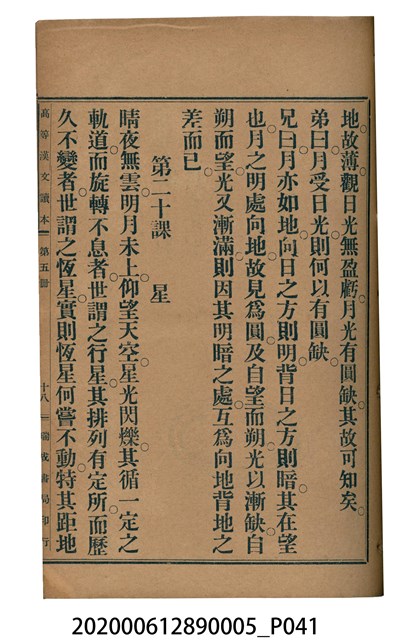 地故薄觀日光無盈虧月光有圓缺其故可知矣
弟曰月受日光則何以有圓缺
兄曰月亦如地向日之方則明背日之方則暗其在望
也月之明處向地故見為圓及自望而朔光以漸缺自
朔而望光又漸滿則因其明暗之處互為向地背地之
差而已
第二十課　星
晴夜無雲明月未上仰望天空星光閃爍其循一定之
軌道而旋轉不息者世謂之行星其排列有定所而歷
久不變者世謂之恆星實則恆星何嘗不動特其距地
高等漢文讀本　第五冊　十八　瑞成書局印行
202000612890005_P041